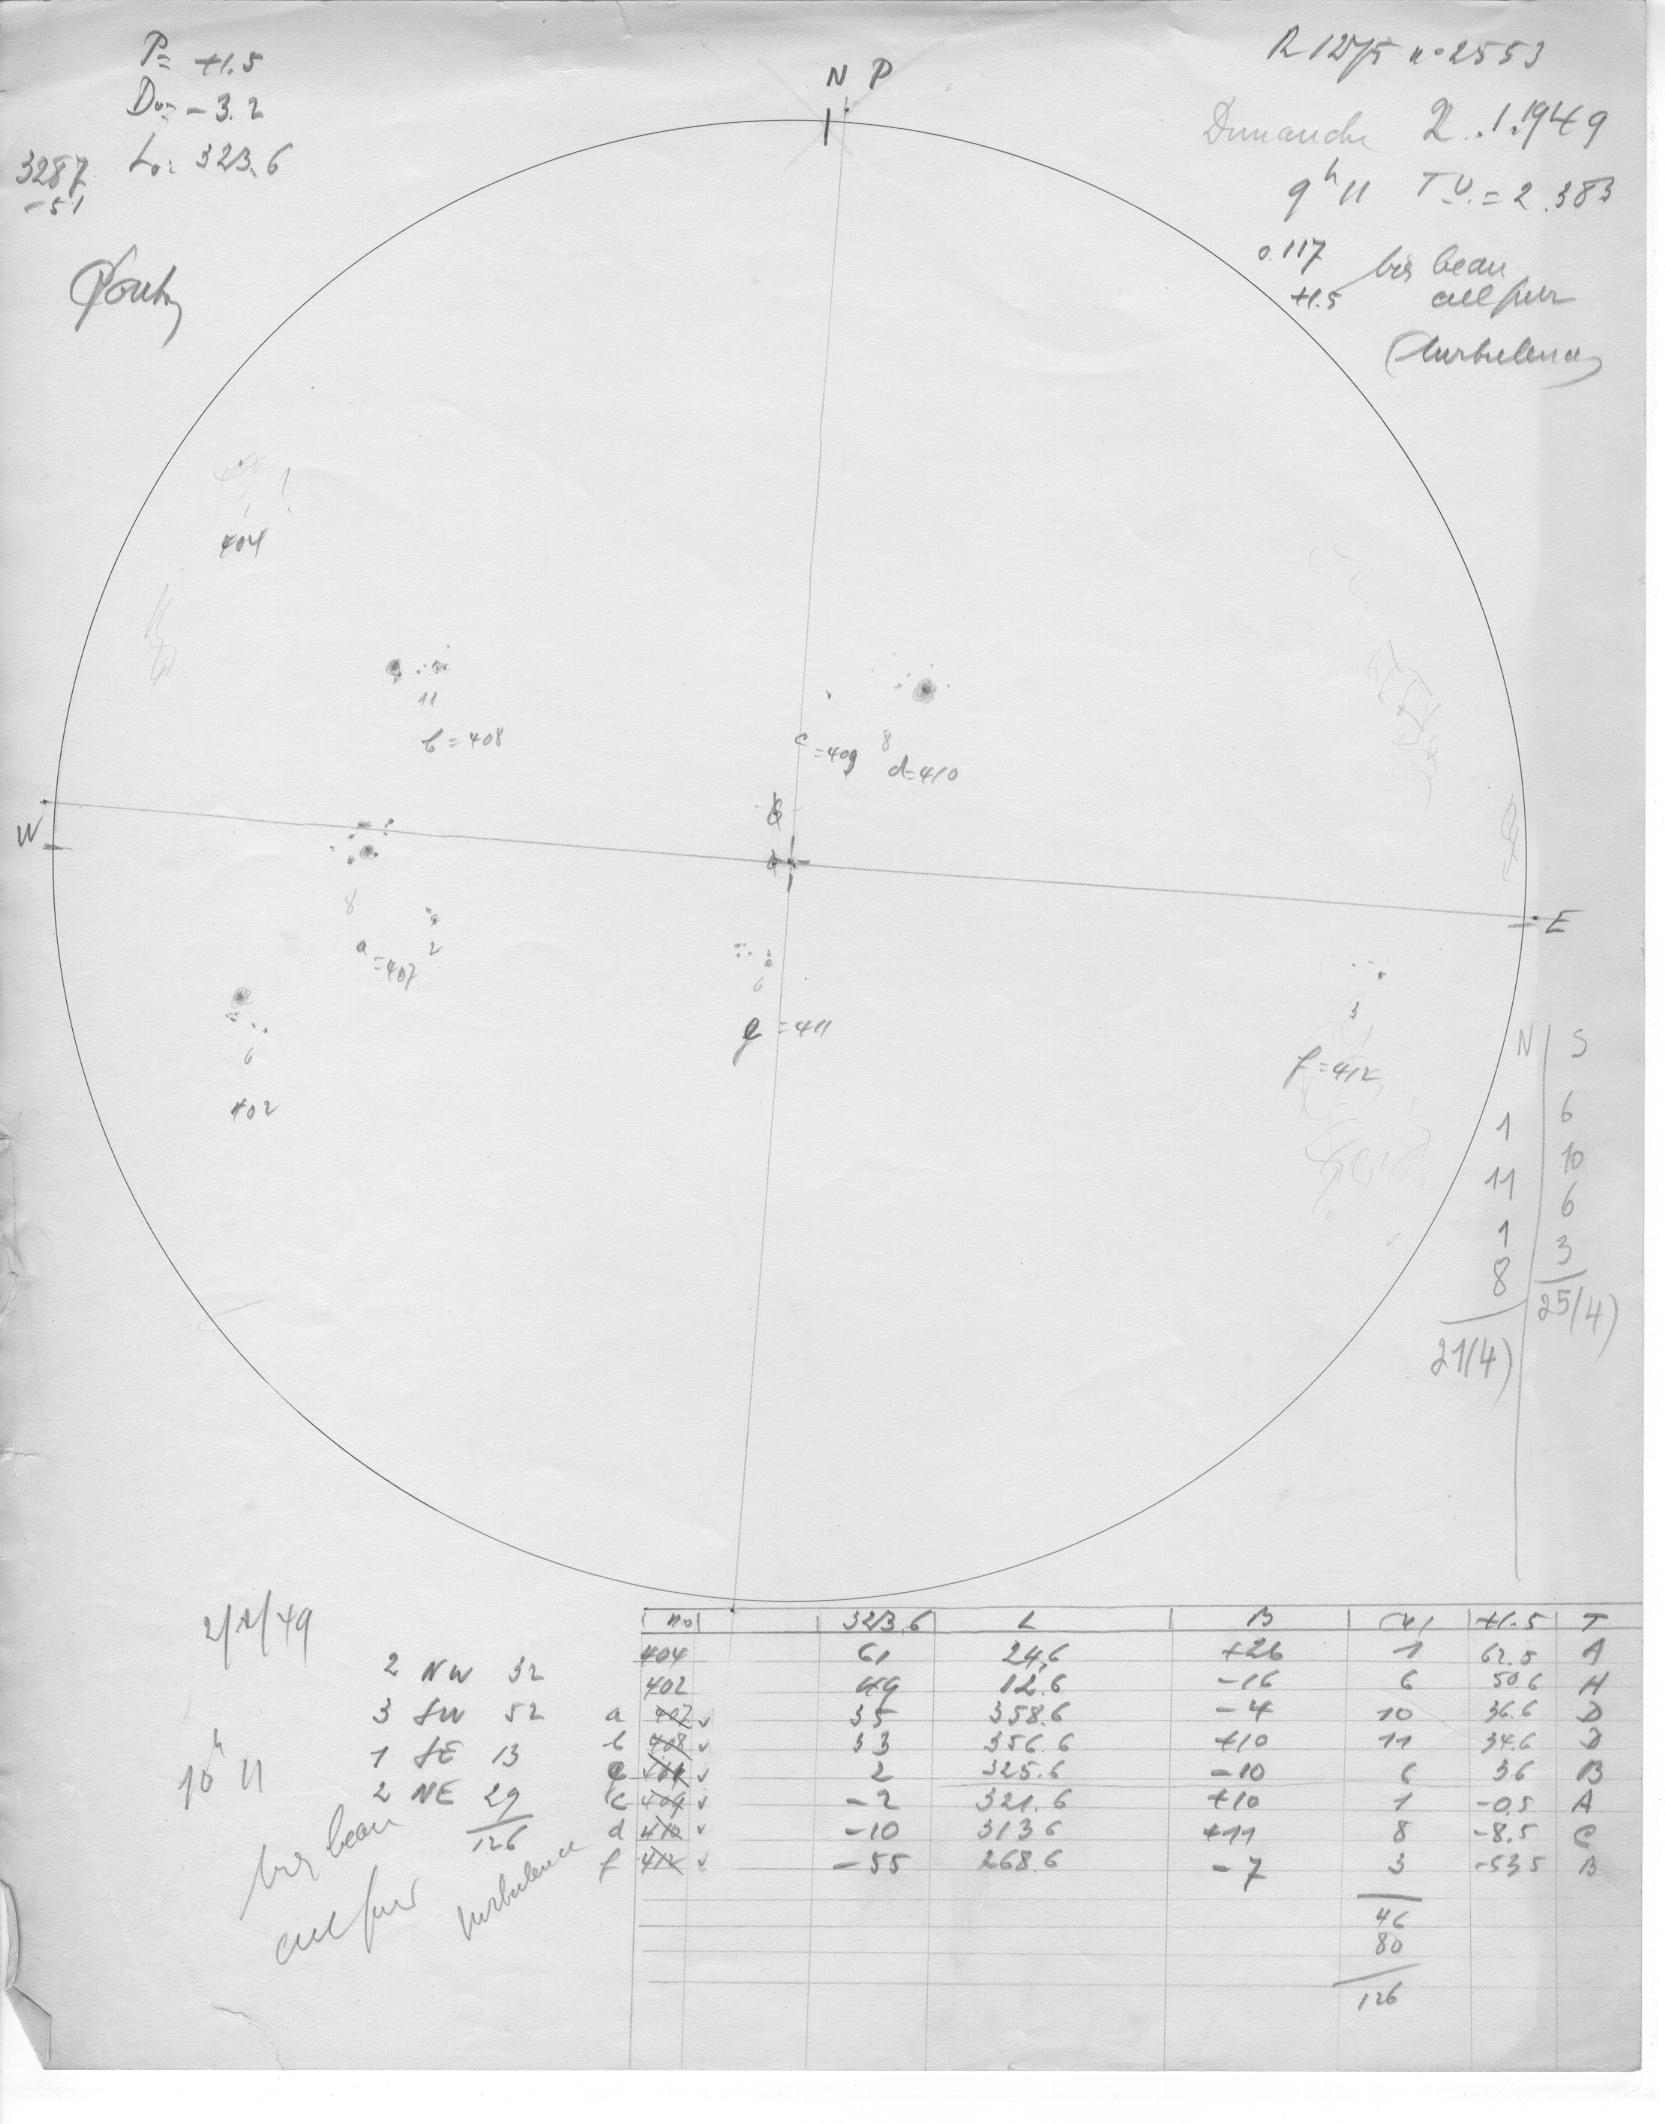 P= +1.5
Do= -3.2
Lo= 323.6
3287
-51
N P
R 1275 n° 2553
Dimanche 2.1.1949
9h11 T.U. = 2.383
0.117
+1.5
très beau
ciel pur
(turbulence)
404
11
b = 408
c = 409
8
d = 410
W
E
8
a = 407
2
6
g = 411
3
f = 412
6
402
N | S
1 | 6
11 | 10
1 | 6
8 | 3
21(4) | 25(4)
2/1/49
2 NW 32
3 SW 52
1 SE 13
2 NE 29
126
10h11
très beau
ciel pur
turbulence
no 323.6 L B +1.5 T
404 61 24.6 +26 1 62.5 A
402 49 12.6 -16 6 50.6 H
a 407 35 358.6 -4 10 36.6 D
b 408 33 356.6 +10 11 34.6 D
e 2 325.6 -10 6 3.6 B
c 409 -2 321.6 +10 1 -0.5 A
d 410 -10 313.6 +11 8 -8.5 C
f 412 -55 268.6 -7 3 -53.5 B
46
80
126